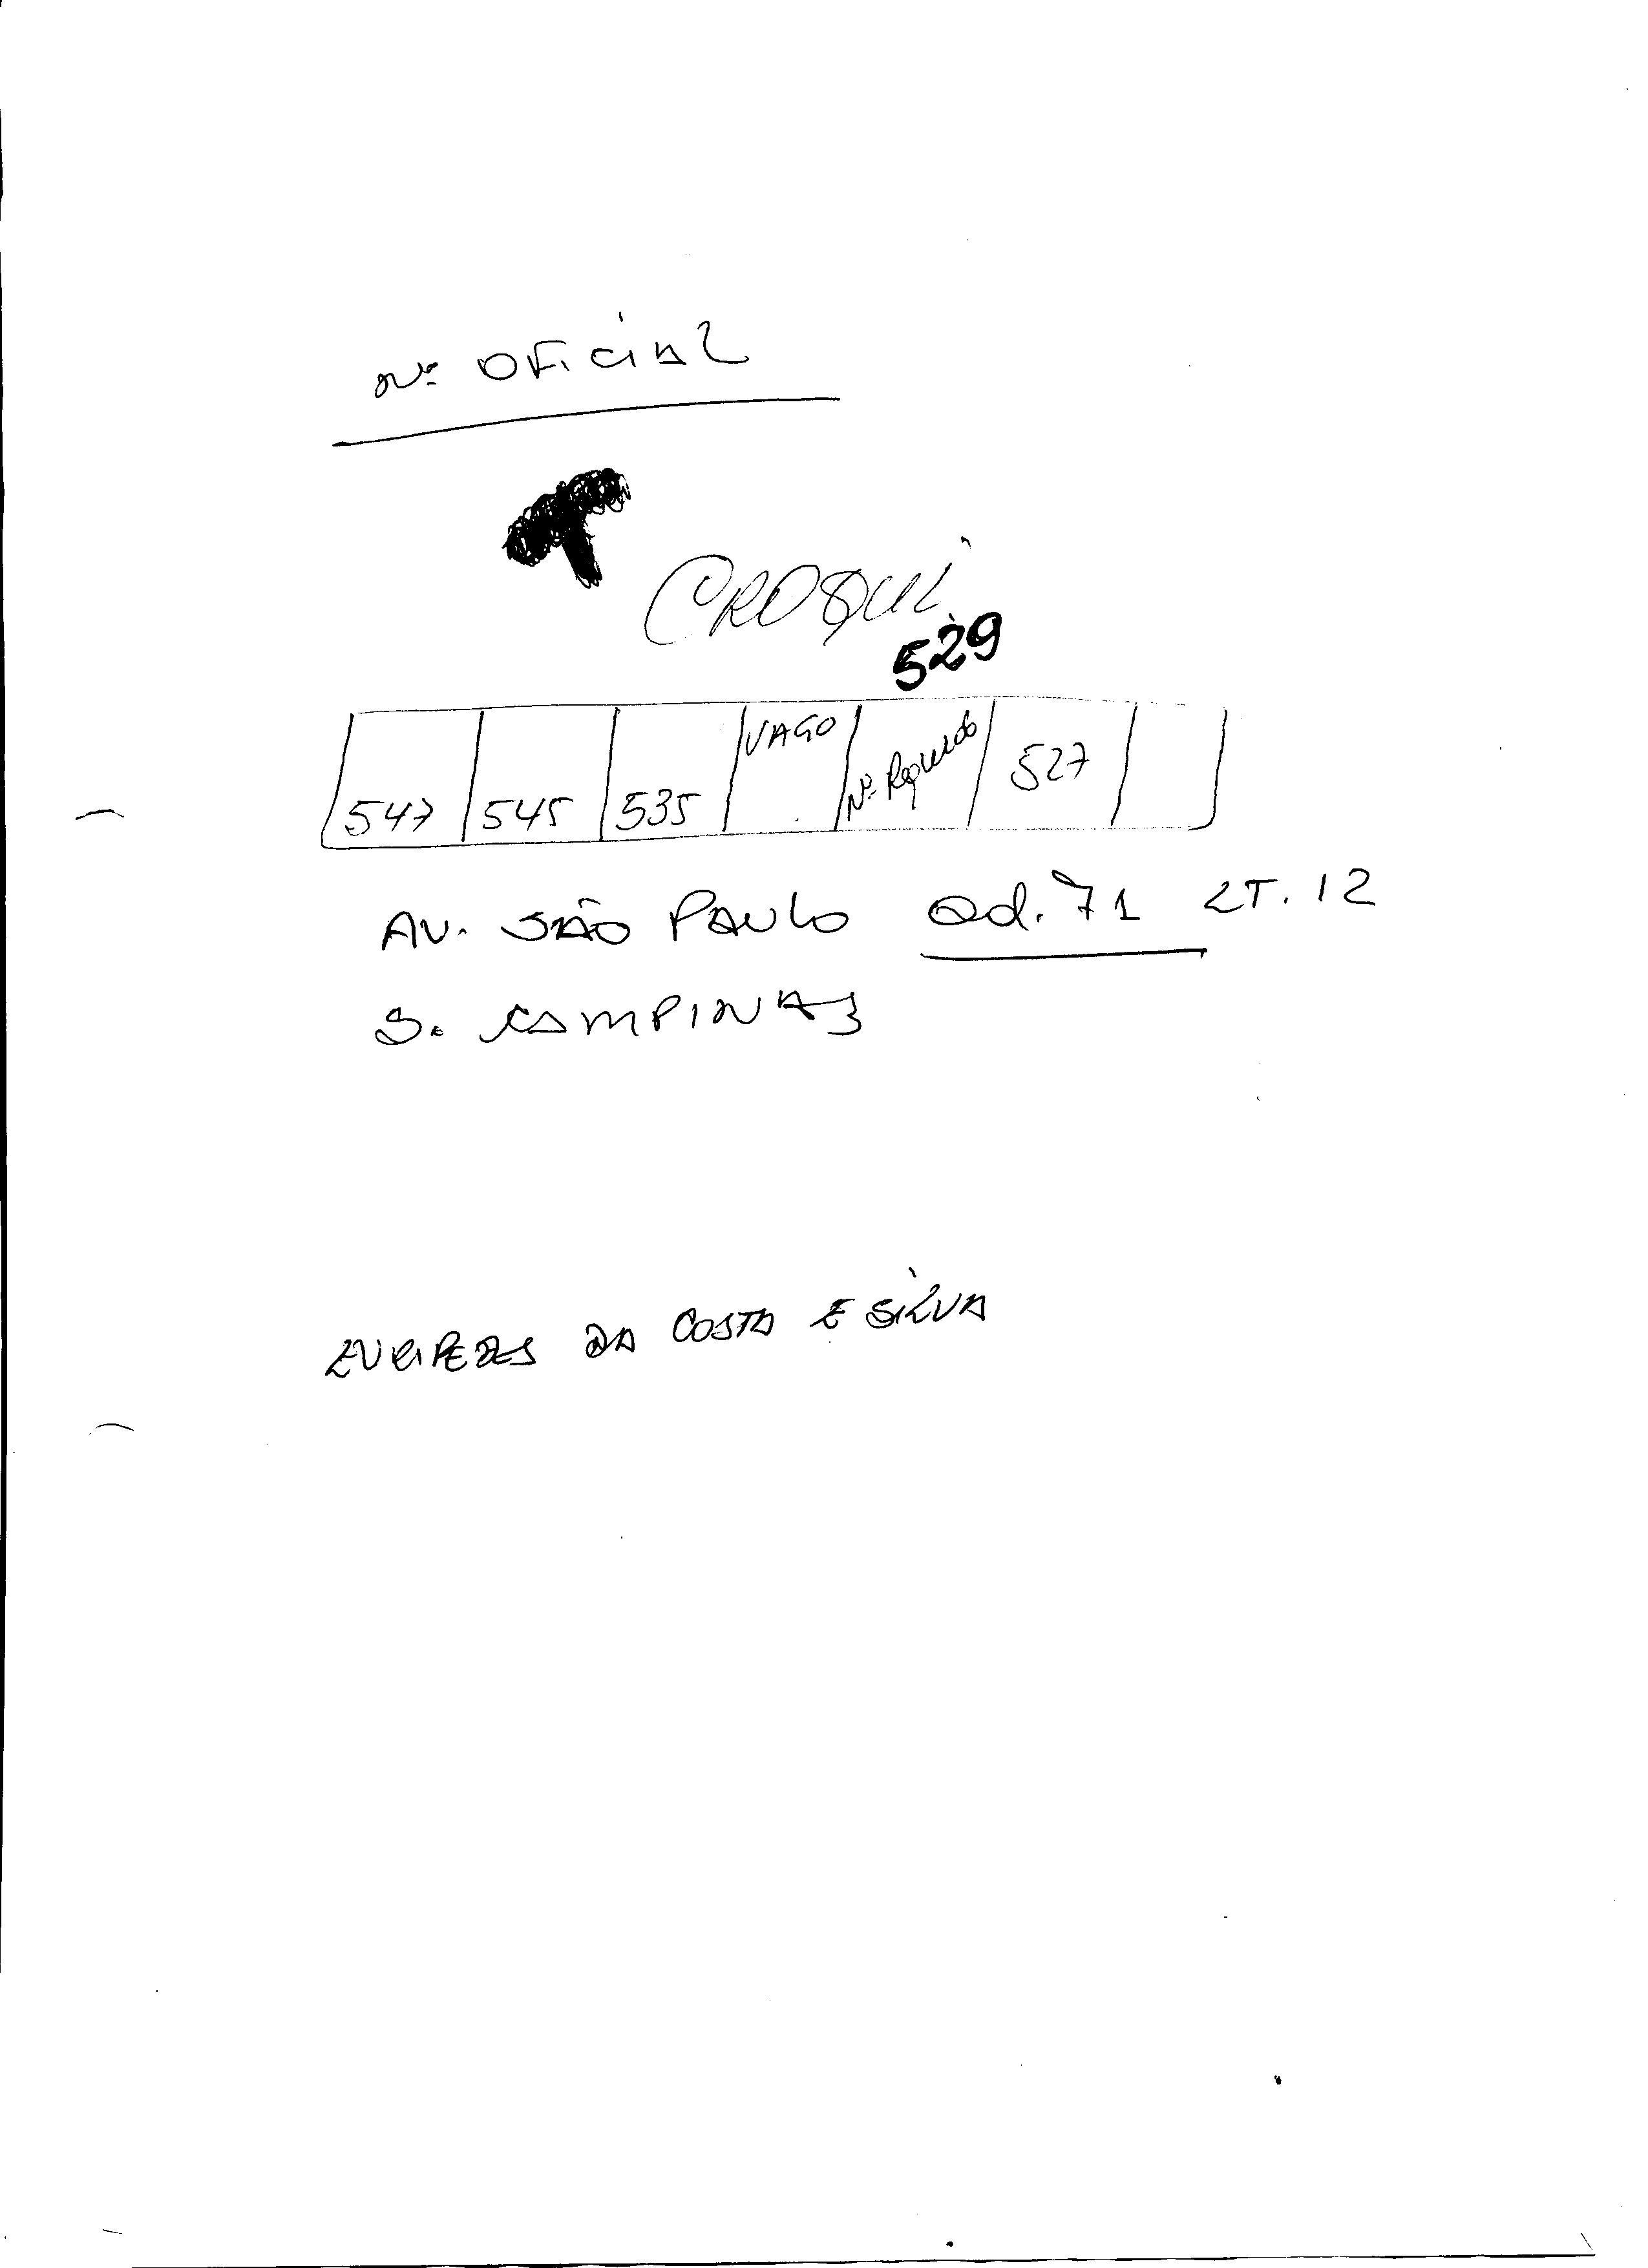 Nº OFICIAL
CROQUI
529
547 545 535 VAGO Nº Requerido 527
AV. SÃO PAULO Qd. 71 LT. 12
S. CAMPINAS
EURIPEDES DA COSTA E SILVA